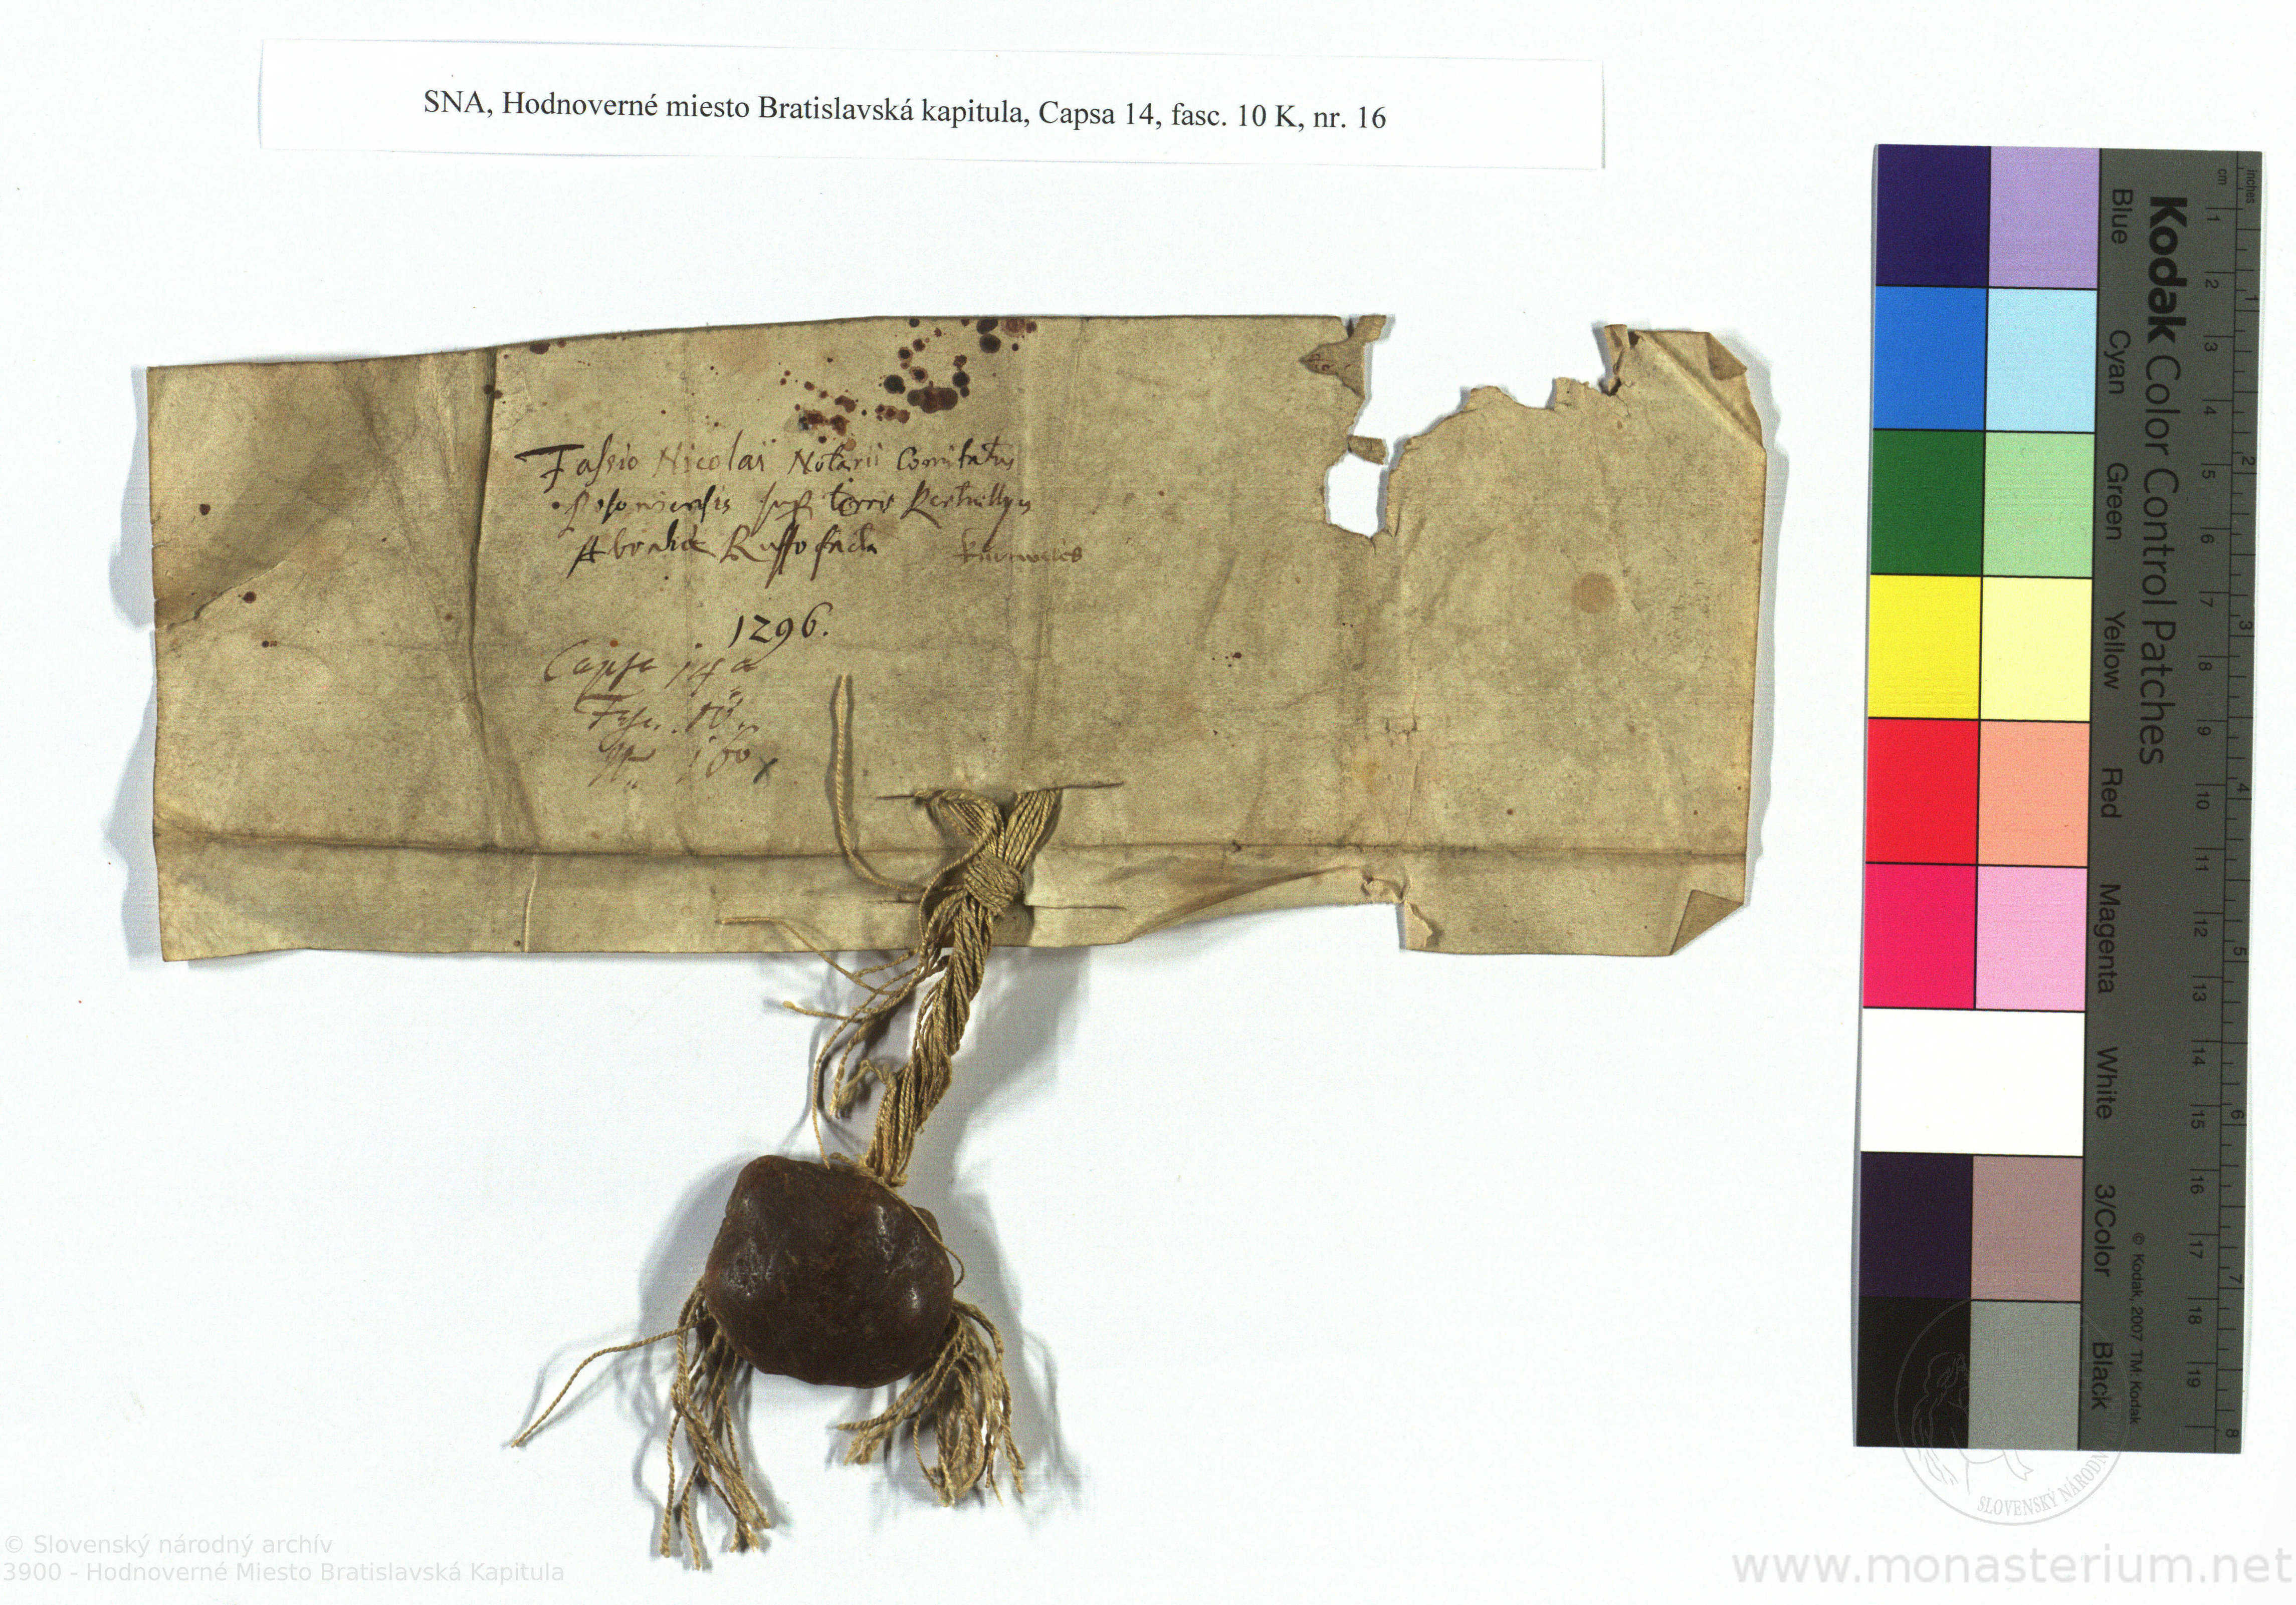 SNA, Hodnoverné miesto Bratislavská kapitula, Capsa 14, fasc. 10 K, nr. 16
Fassio Nicolai Notarii Comitatus
Posoniensis sup terra
Abrahæ Ruffo facta
1296.
Capsa 14 a
Fasc. 10.
Nr 16
Kodak Color Control Patches
Blue Cyan Green Yellow Red Magenta White 3/Color Black
© Kodak, 2007 TM: Kodak
inches
cm
1 2 3 4 5 6 7 8 9 10 11 12 13 14 15 16 17 18 19
1 2 3 4 5 6 7 8
SLOVENSKÝ NÁRODN
© Slovenský národný archív
3900 - Hodnoverné Miesto Bratislavská Kapitula
www.monasterium.net